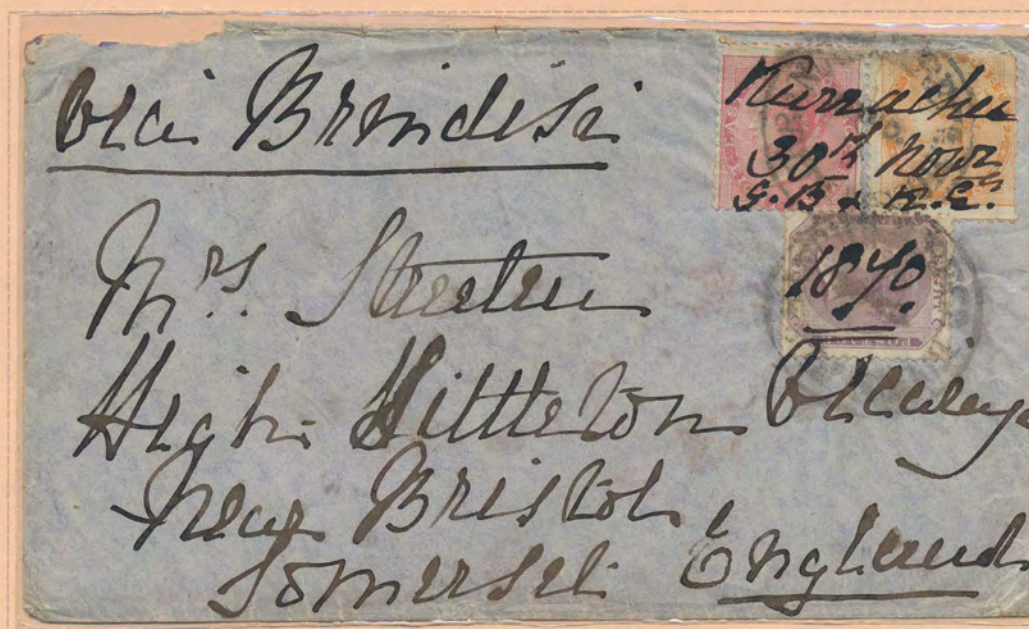 via Brindisi
Kurrachee
30th Novr
G. B. & R. E.
1870
Mrs. Streeten
High Littleton Vicarage
Near Bristol
Somerset England
POSTAGE